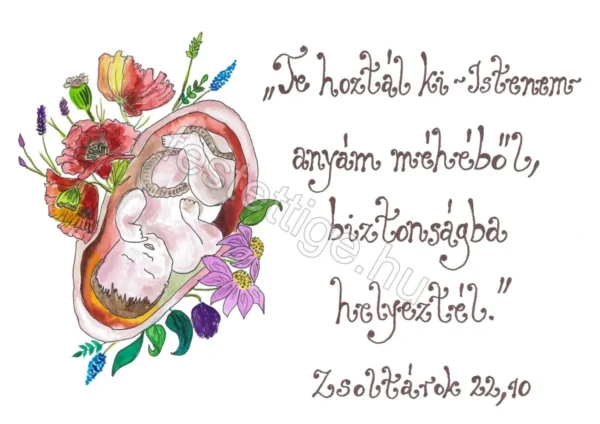 „Te hoztál ki ~Istenem~
anyám méhéből,
biztonságba
helyeztél.”
Zsoltárok 22,10
festettige.hu